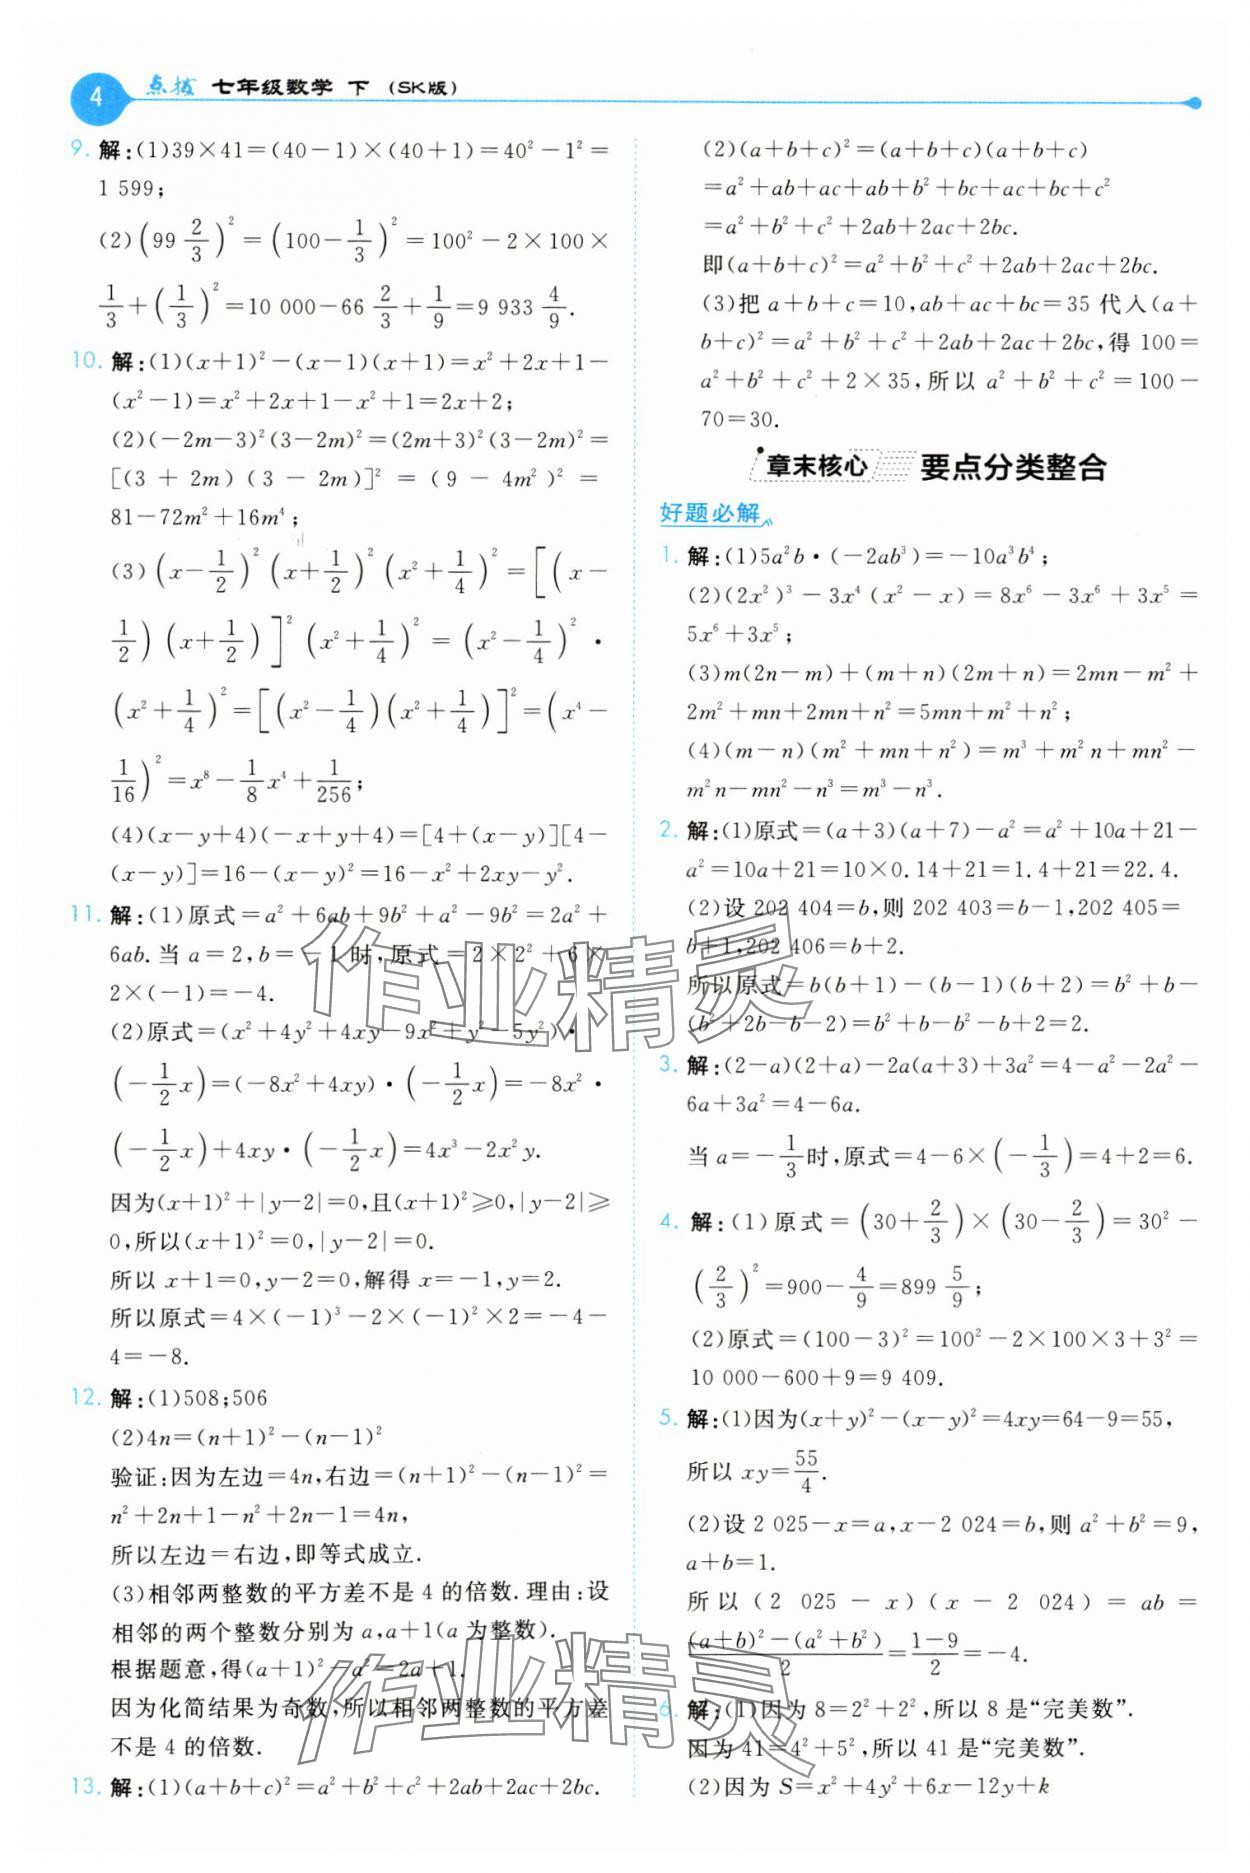 4 点拨 七年级数学 下 (SK版)
9. 解:(1)39×41=(40-1)×(40+1)=40²-1²=
1 599;
(2)(99 2/3)²=(100-1/3)²=100²-2×100×
1/3+(1/3)²=10 000-66 2/3+1/9=9 933 4/9.
10. 解:(1)(x+1)²-(x-1)(x+1)=x²+2x+1-
(x²-1)=x²+2x+1-x²+1=2x+2;
(2)(-2m-3)²(3-2m)²=(2m+3)²(3-2m)²=
[(3+2m)(3-2m)]²=(9-4m²)²=
81-72m²+16m⁴;
(3)(x-1/2)²(x+1/2)²(x²+1/4)²=[(x-
1/2)(x+1/2)]²(x²+1/4)²=(x²-1/4)²·
(x²+1/4)²=[(x²-1/4)(x²+1/4)]²=(x⁴-
1/16)²=x⁸-1/8x⁴+1/256;
(4)(x-y+4)(-x+y+4)=[4+(x-y)][4-
(x-y)]=16-(x-y)²=16-x²+2xy-y².
11. 解:(1)原式=a²+6ab+9b²+a²-9b²=2a²+
6ab.当a=2,b=-1时,原式=2×2²+6×
2×(-1)=-4.
(2)原式=(x²+4y²+4xy-9x²+y²-5y²)·
(-1/2x)=(-8x²+4xy)·(-1/2x)=-8x²·
(-1/2x)+4xy·(-1/2x)=4x³-2x²y.
因为(x+1)²+|y-2|=0,且(x+1)²≥0,|y-2|≥
0,所以(x+1)²=0,|y-2|=0.
所以x+1=0,y-2=0,解得x=-1,y=2.
所以原式=4×(-1)³-2×(-1)²×2=-4-
4=-8.
12. 解:(1)508;506
(2)4n=(n+1)²-(n-1)²
验证:因为左边=4n,右边=(n+1)²-(n-1)²=
n²+2n+1-n²+2n-1=4n,
所以左边=右边,即等式成立.
(3)相邻两整数的平方差不是4的倍数.理由:设
相邻的两个整数分别为a,a+1(a为整数).
根据题意,得(a+1)²-a²=2a+1.
因为化简结果为奇数,所以相邻两整数的平方差
不是4的倍数.
13. 解:(1)(a+b+c)²=a²+b²+c²+2ab+2ac+2bc.
(2)(a+b+c)²=(a+b+c)(a+b+c)
=a²+ab+ac+ab+b²+bc+ac+bc+c²
=a²+b²+c²+2ab+2ac+2bc.
即(a+b+c)²=a²+b²+c²+2ab+2ac+2bc.
(3)把a+b+c=10,ab+ac+bc=35代入(a+
b+c)²=a²+b²+c²+2ab+2ac+2bc,得100=
a²+b²+c²+2×35,所以a²+b²+c²=100-
70=30.
章末核心 要点分类整合
好题必解
1. 解:(1)5a²b·(-2ab³)=-10a³b⁴;
(2)(2x²)³-3x⁴(x²-x)=8x⁶-3x⁶+3x⁵=
5x⁶+3x⁵;
(3)m(2n-m)+(m+n)(2m+n)=2mn-m²+
2m²+mn+2mn+n²=5mn+m²+n²;
(4)(m-n)(m²+mn+n²)=m³+m²n+mn²-
m²n-mn²-n³=m³-n³.
2. 解:(1)原式=(a+3)(a+7)-a²=a²+10a+21-
a²=10a+21=10×0.14+21=1.4+21=22.4.
(2)设202 404=b,则202 403=b-1,202 405=
b+1,202 406=b+2.
所以原式=b(b+1)-(b-1)(b+2)=b²+b-
(b²+2b-b-2)=b²+b-b²-b+2=2.
3. 解:(2-a)(2+a)-2a(a+3)+3a²=4-a²-2a²-
6a+3a²=4-6a.
当a=-1/3时,原式=4-6×(-1/3)=4+2=6.
4. 解:(1)原式=(30+2/3)×(30-2/3)=30²-
(2/3)²=900-4/9=899 5/9;
(2)原式=(100-3)²=100²-2×100×3+3²=
10 000-600+9=9 409.
5. 解:(1)因为(x+y)²-(x-y)²=4xy=64-9=55,
所以xy=55/4.
(2)设2 025-x=a,x-2 024=b,则a²+b²=9,
a+b=1.
所以(2 025-x)(x-2 024)=ab=
((a+b)²-(a²+b²))/2=(1-9)/2=-4.
6. 解:(1)因为8=2²+2²,所以8是“完美数”.
因为41=4²+5²,所以41是“完美数”.
(2)因为S=x²+4y²+6x-12y+k
作业精灵
作业精灵